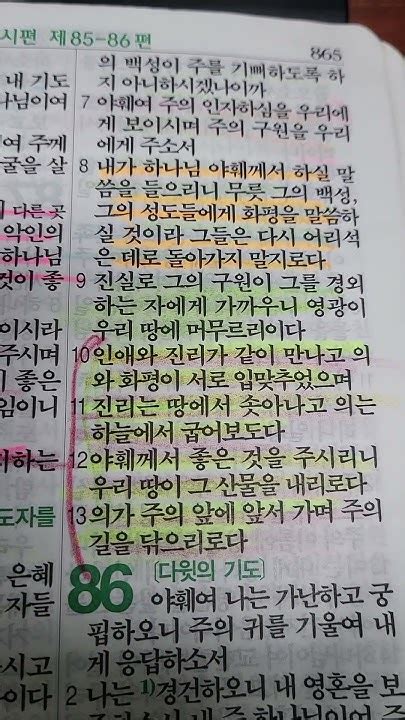 시편 제85-86편
865
내 기도
나님이여
여 주께
굴을 살
다른 곳
악인의
하나님
것이 좋
이시라
주시며
좋은
임이니
하는
도자를
은혜
자들
하시고
이다
의 백성이 주를 기뻐하도록 하
지 아니하시겠나이까
7 야훼여 주의 인자하심을 우리에
게 보이시며 주의 구원을 우리
에게 주소서
8 내가 하나님 야훼께서 하실 말
씀을 들으리니 무릇 그의 백성,
그의 성도들에게 화평을 말씀하
실 것이라 그들은 다시 어리석
은 데로 돌아가지 말지로다
9 진실로 그의 구원이 그를 경외
하는 자에게 가까우니 영광이
우리 땅에 머무르리이다
10 인애와 진리가 같이 만나고 의
와 화평이 서로 입맞추었으며
11 진리는 땅에서 솟아나고 의는
하늘에서 굽어보도다
12 야훼께서 좋은 것을 주시리니
우리 땅이 그 산물을 내리로다
13 의가 주의 앞에 앞서 가며 주의
길을 닦으리로다
86 (다윗의 기도)
야훼여 나는 가난하고 궁
핍하오니 주의 귀를 기울여 내
게 응답하소서
2 나는 1)경건하오니 내 영혼을 보